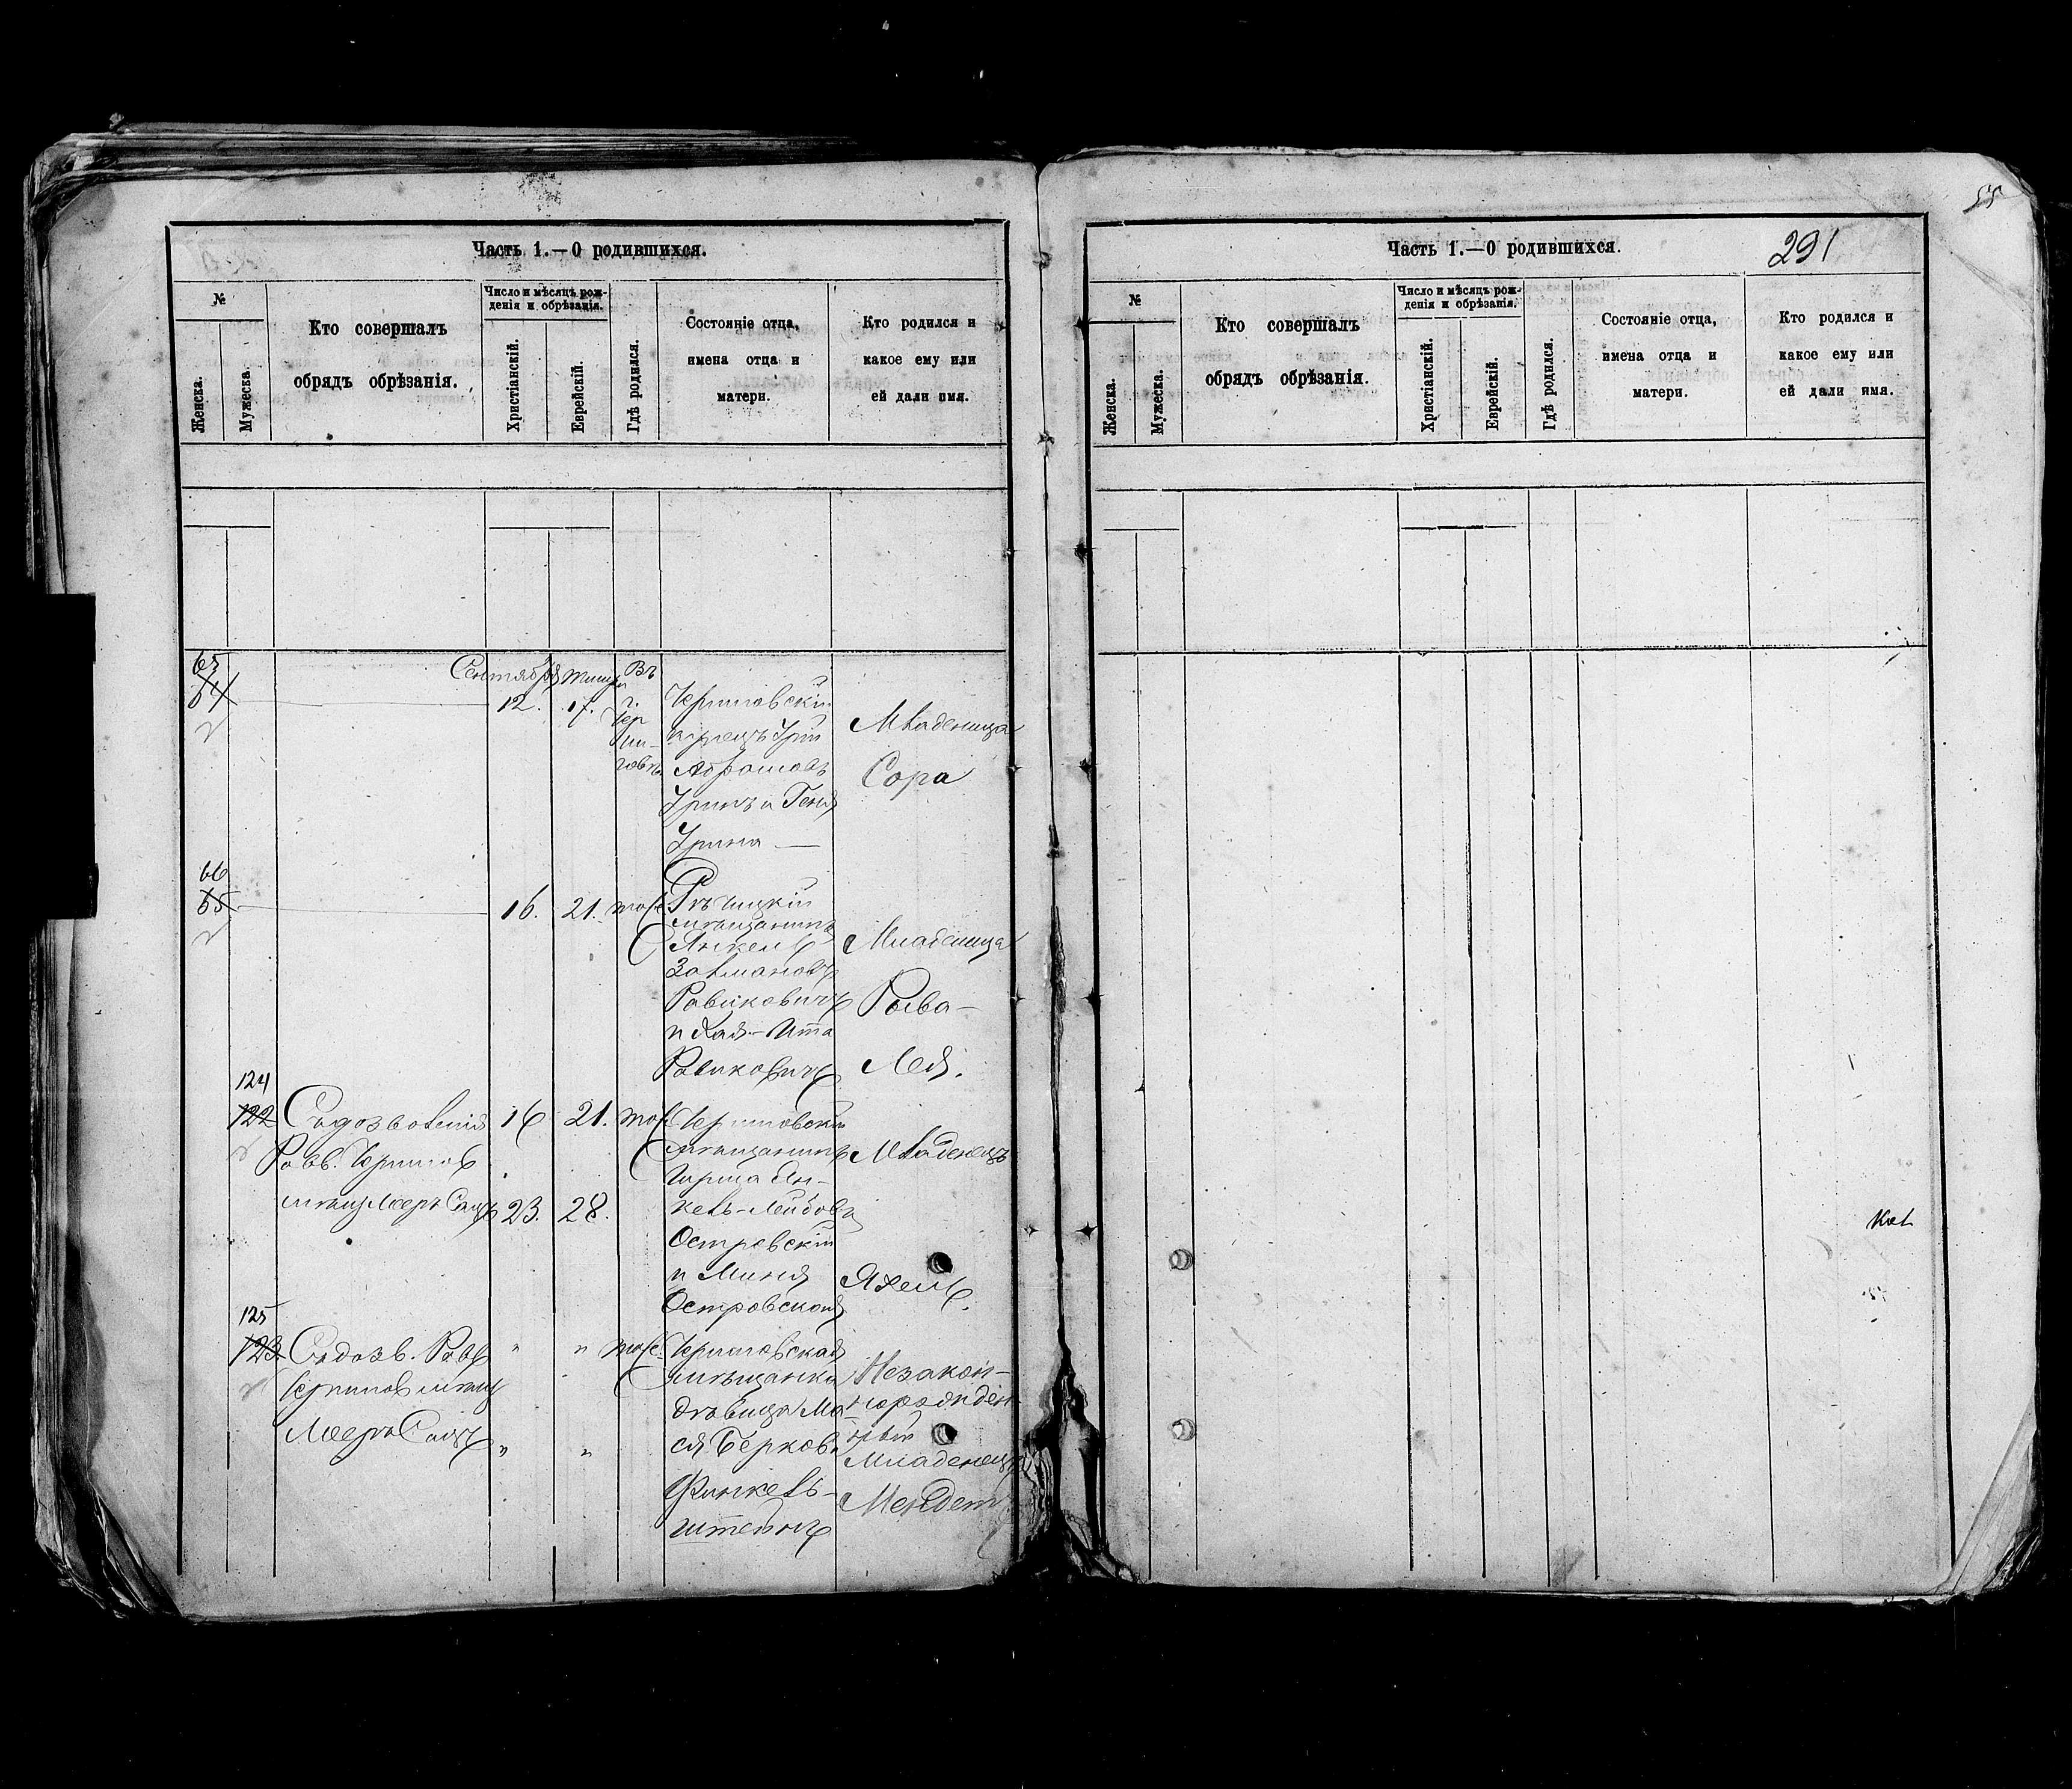 Часть 1.—О родившихся.
№
Женска.
Мужеска.
Кто совершалъ
обрядъ обрѣзанія.
Число и мѣсяцъ рож-
денія и обрѣзанія.
Христіанскій.
Еврейскій.
Гдѣ родился.
Состояніе отца,
имена отца и
матери.
Кто родился и
какое ему или
ей дали имя.
65
64
Сентября
12.
17.
Въ
г.
Чер
ни-
говѣ
Черниговскій
купецъ
Абрамовъ
и Геня
Младеница
Сора
66
65
16.
21.
тоже
Рѣчицкій
мѣщанинъ
Янкель
Залмановъ
Равиковичъ
и Хая-Ита
Равиковичъ
Младеница
Рыва-
Лея.
124
122
Съ дозволенія
Равв. Чернигов
мѣщ Мееръ
16
21.
23.
28.
тоже
Черниговскій
мѣщанинъ
Ян-
кель-Лейбовъ
Островскій
и Миня
Островская
Младенецъ
Яхель.
125
123
Съ дозв. Равв
Чернигов мѣщ
Мееръ
"
"
"
"
тоже
Черниговская
мѣщанка
дѣвица Ма-
ся Беркова
Финкель-
штейнъ
Незакон-
норожден-
ный
Младенецъ
Мендель
Часть 1.—О родившихся.
291
55
№
Женска.
Мужеска.
Кто совершалъ
обрядъ обрѣзанія.
Число и мѣсяцъ рож-
денія и обрѣзанія.
Христіанскій.
Еврейскій.
Гдѣ родился.
Состояніе отца,
имена отца и
матери.
Кто родился и
какое ему или
ей дали имя.